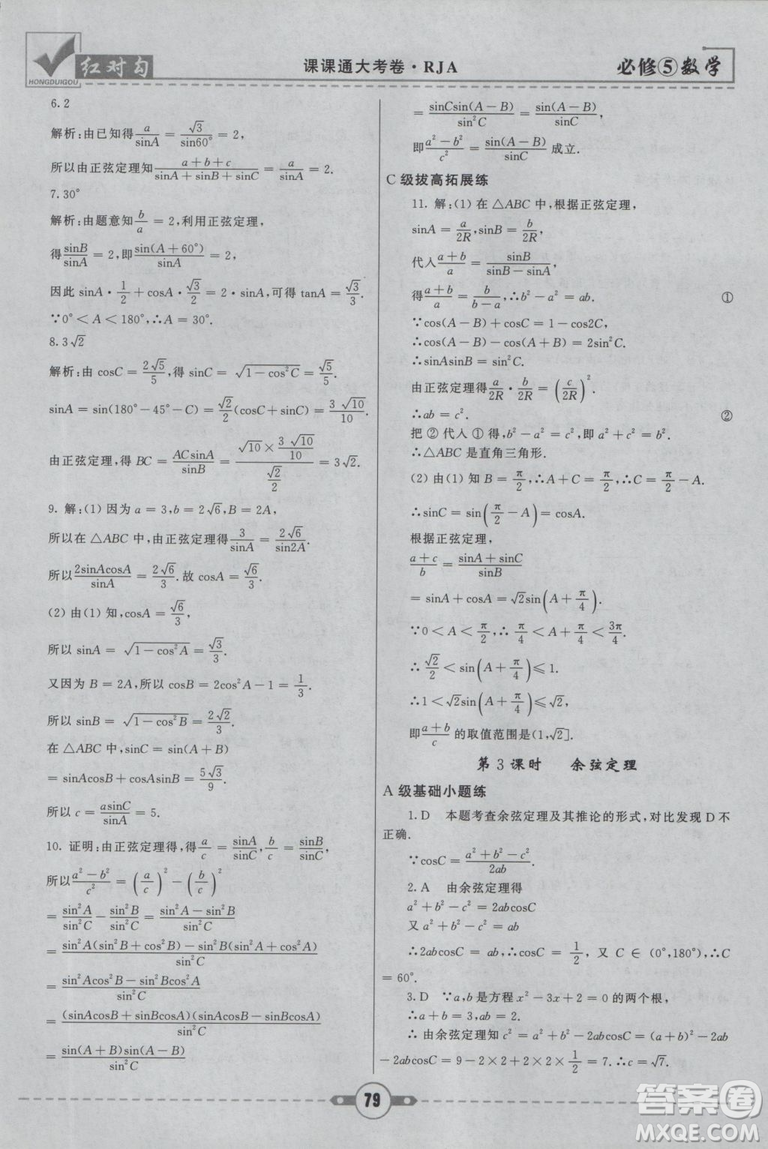 红对勾
HONGDUIGOU
课课通大考卷·RJA
必修⑤数学
6.2
解析:由已知得a/sinA=√3/sin60°=2,
所以由正弦定理知(a+b+c)/(sinA+sinB+sinC)=a/sinA=2.
7.30°
解析:由题意知b/a=2,利用正弦定理,
得sinB/sinA=2,即sin(A+60°)/sinA=2,
因此sinA·1/2+cosA·√3/2=2sinA,可得tanA=√3/3.
∵0°<A<180°,∴A=30°.
8.3√2
解析:由cosC=2√5/5,得sinC=√(1-cos²C)=√5/5,
sinA=sin(180°-45°-C)=√2/2(cosC+sinC)=3√10/10,
由正弦定理,得BC=ACsinA/sinB=(√10×3√10/10)/(√2/2)=3√2.
9.解:(1)因为a=3,b=2√6,B=2A,
所以在△ABC中,由正弦定理得3/sinA=2√6/sin2A.
所以2sinAcosA/sinA=2√6/3.故cosA=√6/3.
(2)由(1)知,cosA=√6/3,
所以sinA=√(1-cos²A)=√3/3.
又因为B=2A,所以cosB=2cos²A-1=1/3.
所以sinB=√(1-cos²B)=2√2/3.
在△ABC中,sinC=sin(A+B)
=sinAcosB+cosAsinB=5√3/9.
所以c=asinC/sinA=5.
10.证明:由正弦定理得,得a/c=sinA/sinC,b/c=sinB/sinC,
所以(a²-b²)/c²=(a/c)²-(b/c)²
=sin²A/sin²C-sin²B/sin²C=(sin²A-sin²B)/sin²C
=(sin²A(sin²B+cos²B)-sin²B(sin²A+cos²A))/sin²C
=(sin²Acos²B-sin²Bcos²A)/sin²C
=(sinAcosB+cosAsinB)(sinAcosB-cosAsinB)/sin²C
=sin(A+B)sin(A-B)/sin²C
=sinCsin(A-B)/sin²C=sin(A-B)/sinC,
即(a²-b²)/c²=sin(A-B)/sinC成立.
C级拔高拓展练
11.解:(1)在△ABC中,根据正弦定理,
sinA=a/2R,sinB=b/2R,
代入(a+b)/a=sinB/(sinB-sinA),
得(a+b)/a=b/(b-a),∴b²-a²=ab. ①
∵cos(A-B)+cosC=1-cos2C,
∴cos(A-B)-cos(A+B)=2sin²C.
∴sinAsinB=sin²C.
由正弦定理得a/2R·b/2R=(c/2R)²,
∴ab=c². ②
把②代入①得,b²-a²=c²,即a²+c²=b².
∴△ABC是直角三角形.
(2)由(1)知B=π/2,∴A+C=π/2,∴C=π/2-A.
∴sinC=sin(π/2-A)=cosA.
根据正弦定理,
(a+c)/b=(sinA+sinC)/sinB
=sinA+cosA=√2sin(A+π/4).
∵0<A<π/2,∴π/4<A+π/4<3π/4.
∴√2/2<sin(A+π/4)≤1.
∴1<√2sin(A+π/4)≤√2,
即(a+b)/c的取值范围是(1,√2].
第3课时 余弦定理
A级基础小题练
1.D 本题考查余弦定理及其推论的形式,对比发现D不
正确.
∵cosC=(a²+b²-c²)/2ab.
2.A 由余弦定理得
a²+b²-c²=2abcosC
又a²+b²-c²=ab
∴2abcosC=ab,∴cosC=1/2,∵C∈(0°,180°),∴C=
60°.
3.D ∵a,b是方程x²-3x+2=0的两个根,
∴由余弦定理知c²=a²+b²-2abcosC=(a+b)²-2ab
-2abcosC=9-2×2-2×2×1/2=7.∴c=√7.
79
答案圈
MXQE.COM